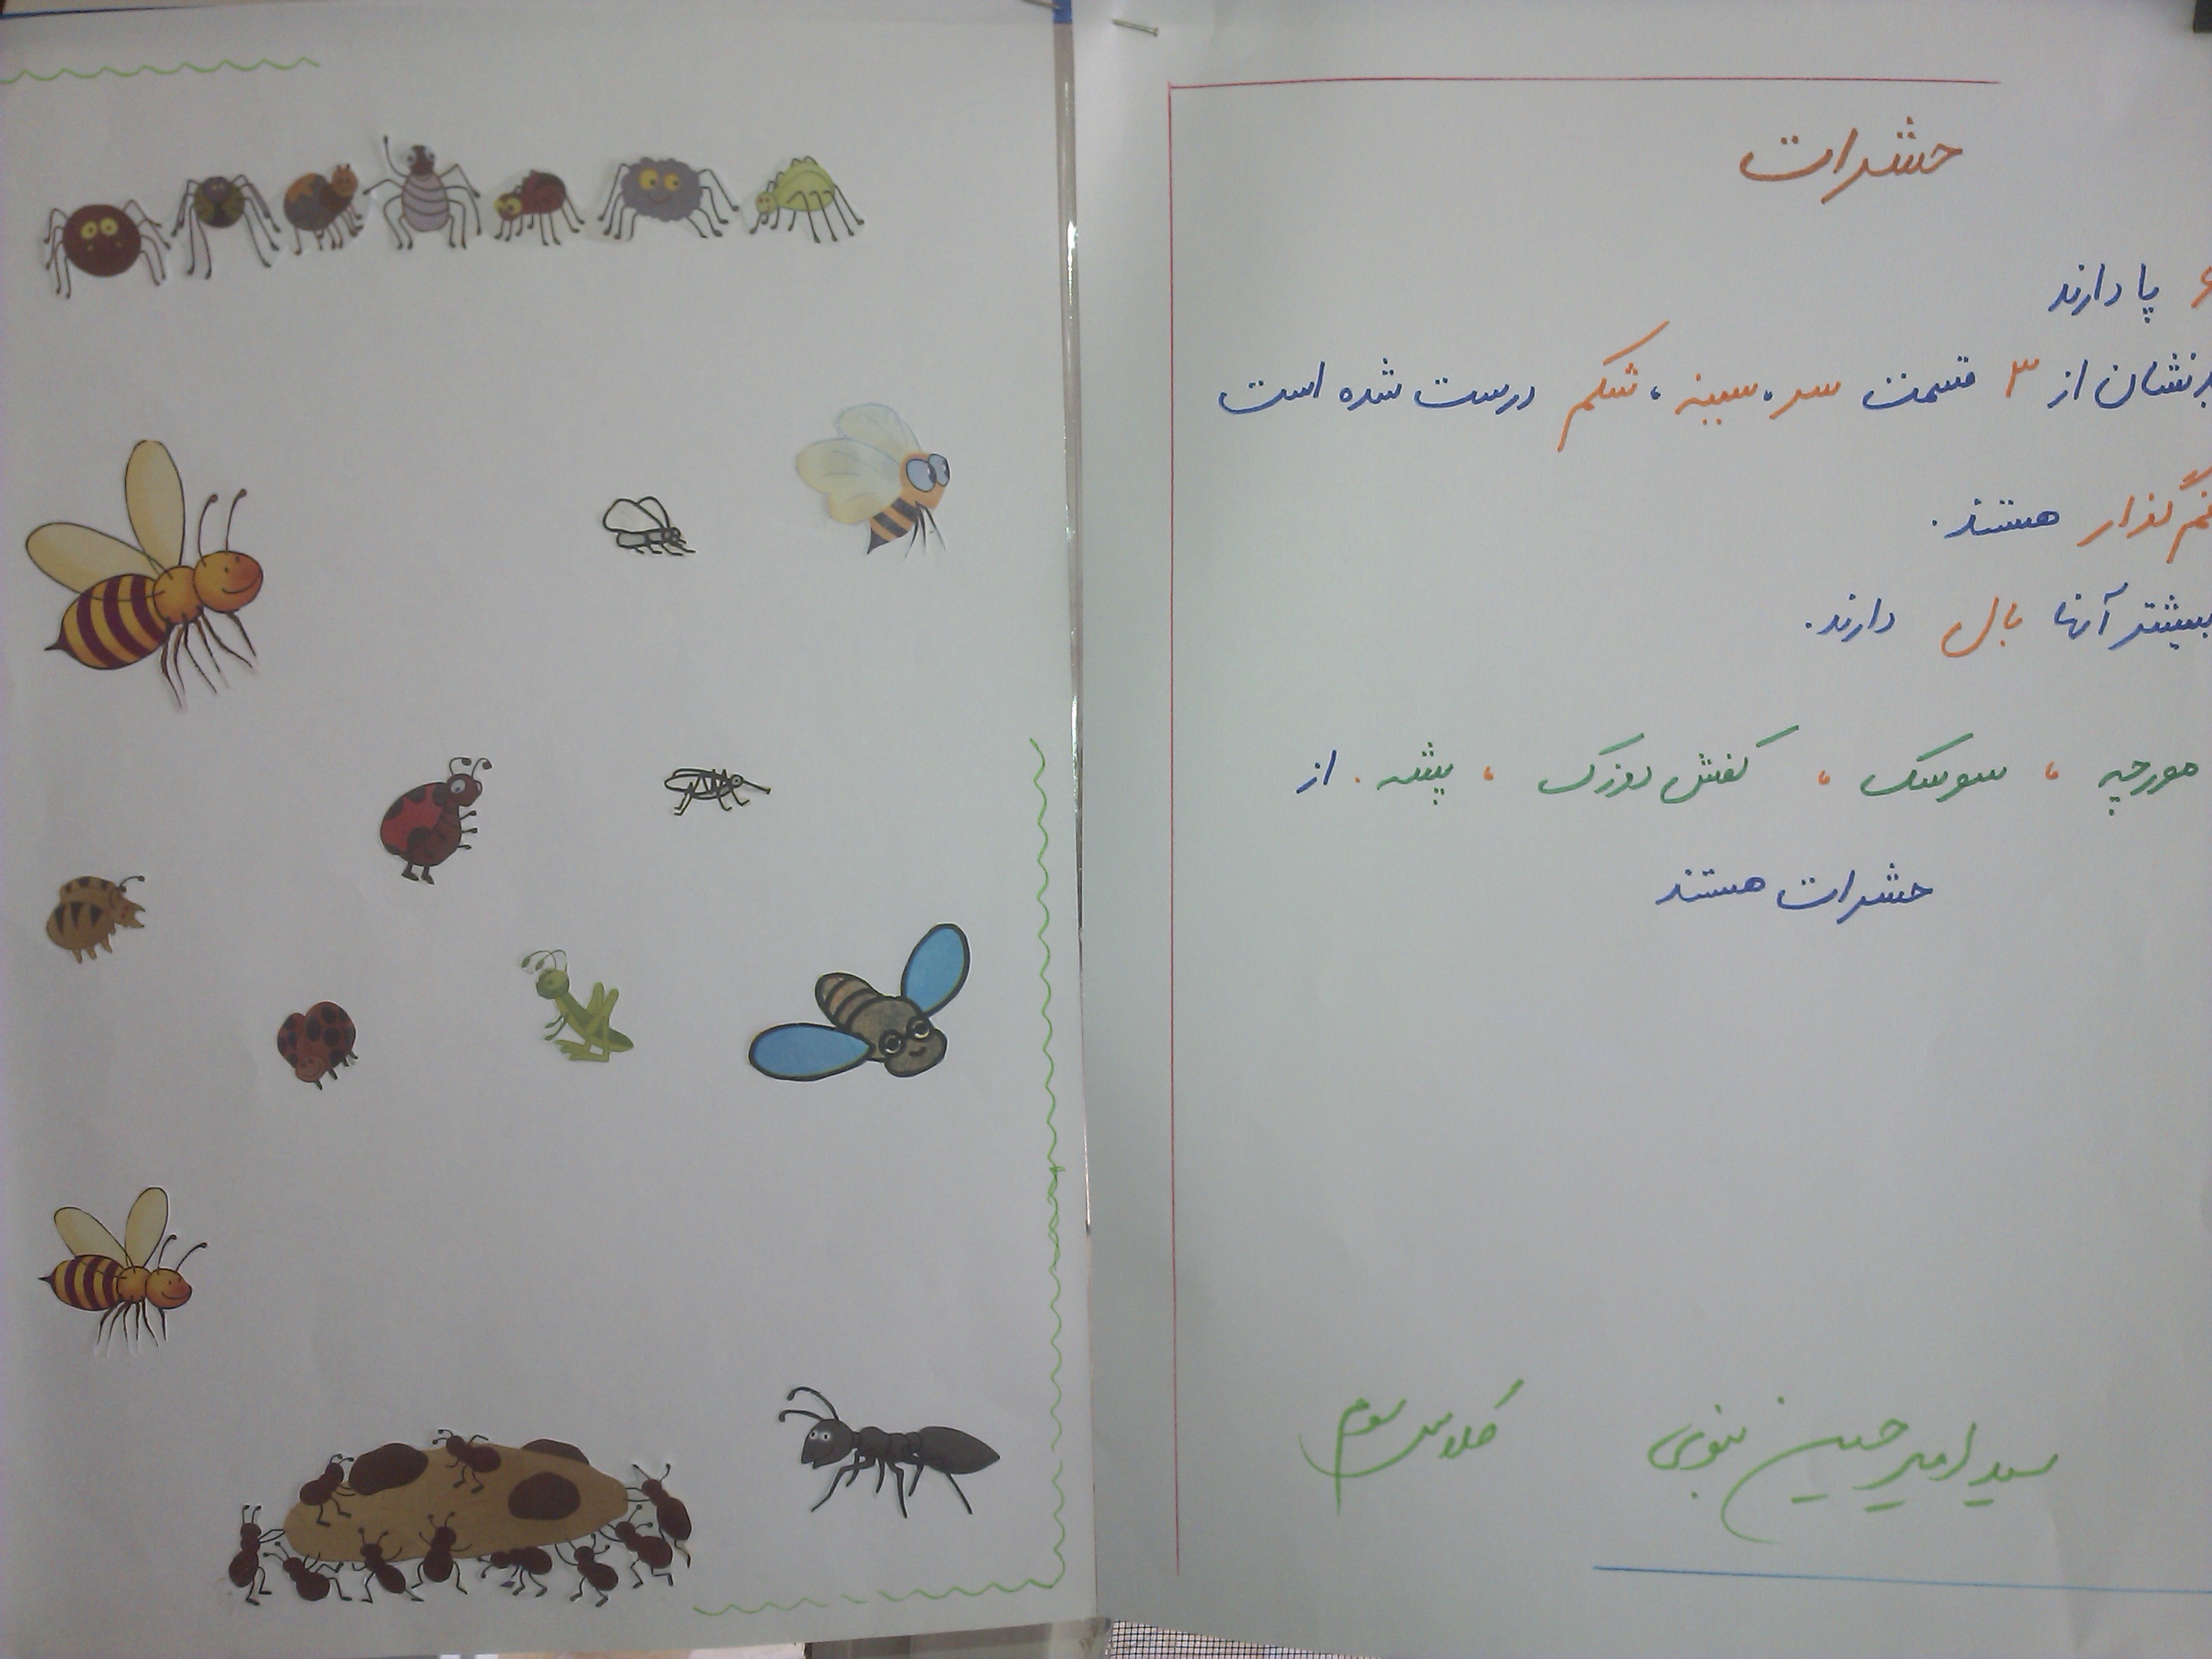 حشرات
۶ پا دارند
بدنشان از ۳ قسمت سر، سینه، شکم درست شده است
تخم گذار هستند.
بیشتر آنها بال دارند.
مورچه ، سوسک ، کفش دوزک ، پشه . از
حشرات هستند
سید امیر حسین نبوی کلاس سوم